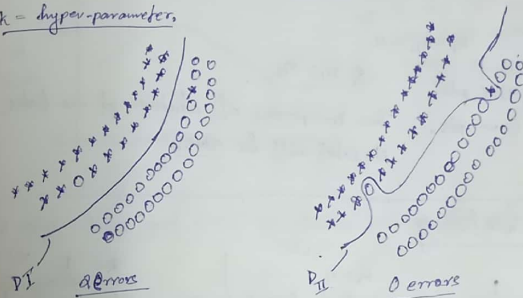 K = hyper-parameter,
D I
2 Errors
D II
0 errors